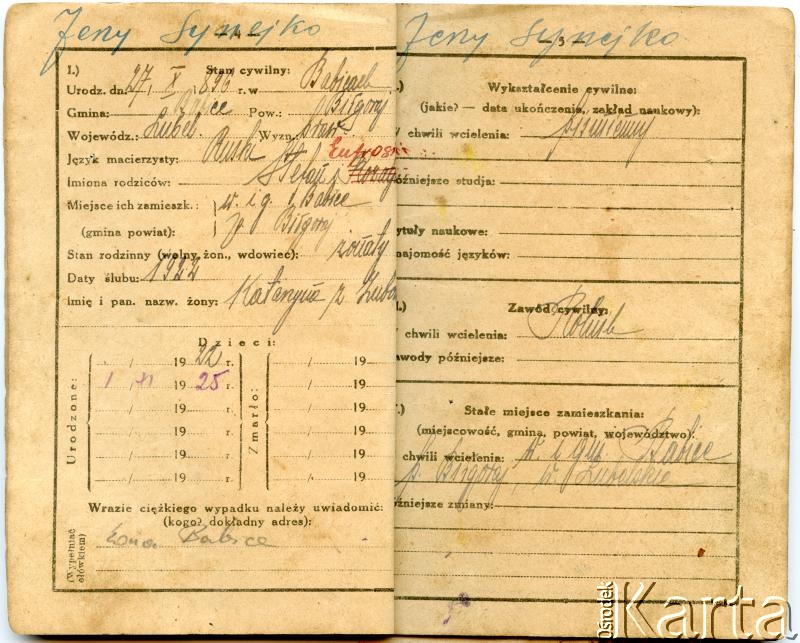 Jeny Synejko
— 4 —
I.) Stan cywilny:
Urodz. dn. 27, X 1896 r. w Babicach
Gmina: Babice Pow.: Biłgoraj
Wojewódz.: Lubel. Wyzn. praw.
Język macierzysty: Ruski
Imiona rodziców: Stefan i
Miejsce ich zamieszk.: w. i g. Babice
(gmina powiat): p. Biłgoraj
Stan rodzinny (wolny, żon., wdowiec): żonaty
Daty ślubu: 1922
Imię i pan. nazw. żony: Katarzyna z
Dzieci:
Urodzone:
/ 19 22 r.
1 / XI 19 25 r.
/ 19 r.
/ 19 r.
/ 19 r.
/ 19 r.
Zmarło:
/ 19
/ 19
/ 19
/ 19
/ 19
/ 19
Wrazie ciężkiego wypadku należy uwiadomić:
(kogo? dokładny adres):
(Wypełniać ołówkiem)
żona Babice
Jeny Synejko
— 5 —
.) Wykształcenie cywilne:
(jakie? — data ukończenia, zakład naukowy):
chwili wcielenia: piśmienny
óźniejsze studja:
ytuły naukowe:
najomość języków:
.) Zawód cywilny:
chwili wcielenia: Rolnik
awody późniejsze:
.) Stałe miejsce zamieszkania:
(miejscowość, gmina, powiat, województwo):
chwili wcielenia: w. i gm. Babice
p. Biłgoraj, w. Lubelskie
óźniejsze zmiany:
Ośrodek
Karta